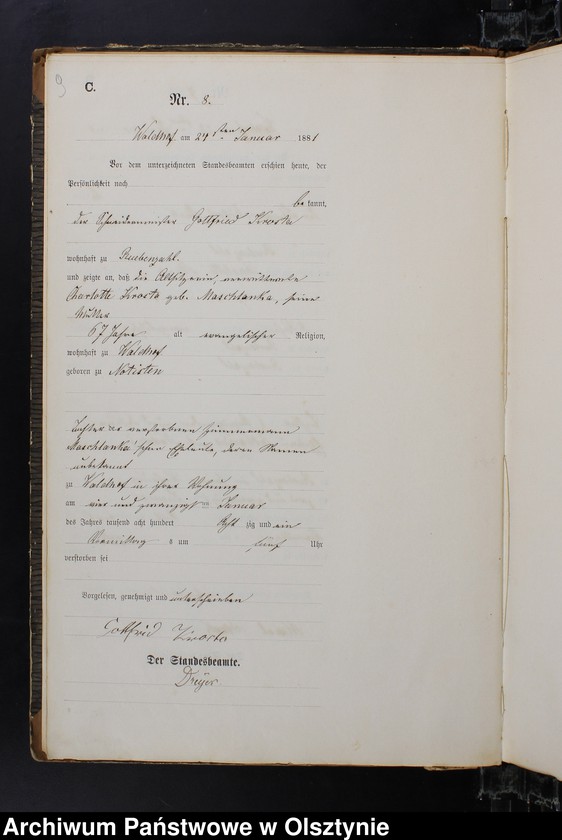 9
C.
Nr. 8.
Waldhof am 24sten Januar 1881
Vor dem unterzeichneten Standesbeamten erschien heute, der
Persönlichkeit nach
be kannt,
der Schneidermeister Gottfried Krosta
wohnhaft zu Rübenzahl.
und zeigte an, daß die Altsitzerin, verwittwete
Charlotte Krosta geb. Maschlanka, seine
Mutter
67 Jahre alt evangelischer Religion,
wohnhaft zu Waldhof
geboren zu Notisten
Tochter der verstorbenen Zimmermann
Maschlanka'schen Eheleute, deren Namen
unbekannt
zu Waldhof in ihrer Wohnung
am vier und zwanzigsten Januar
des Jahres tausend acht hundert Acht zig und ein
Vormittags um fünf Uhr
verstorben sei
Vorgelesen, genehmigt und unterschrieben
Gottfried Krosta
Der Standesbeamte.
Dreyer
Archiwum Państwowe w Olsztynie